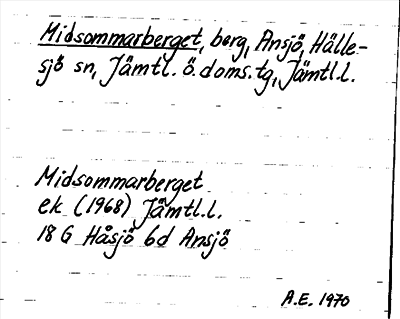 Midsommarberget, berg, Ansjö, Hälle-
sjö sn, Jämtl. ö. doms. tg, Jämtl.l.
Midsommarberget
ek (1968) Jämtl.l.
18 G Håsjö 6d Ansjö
A.E. 1970